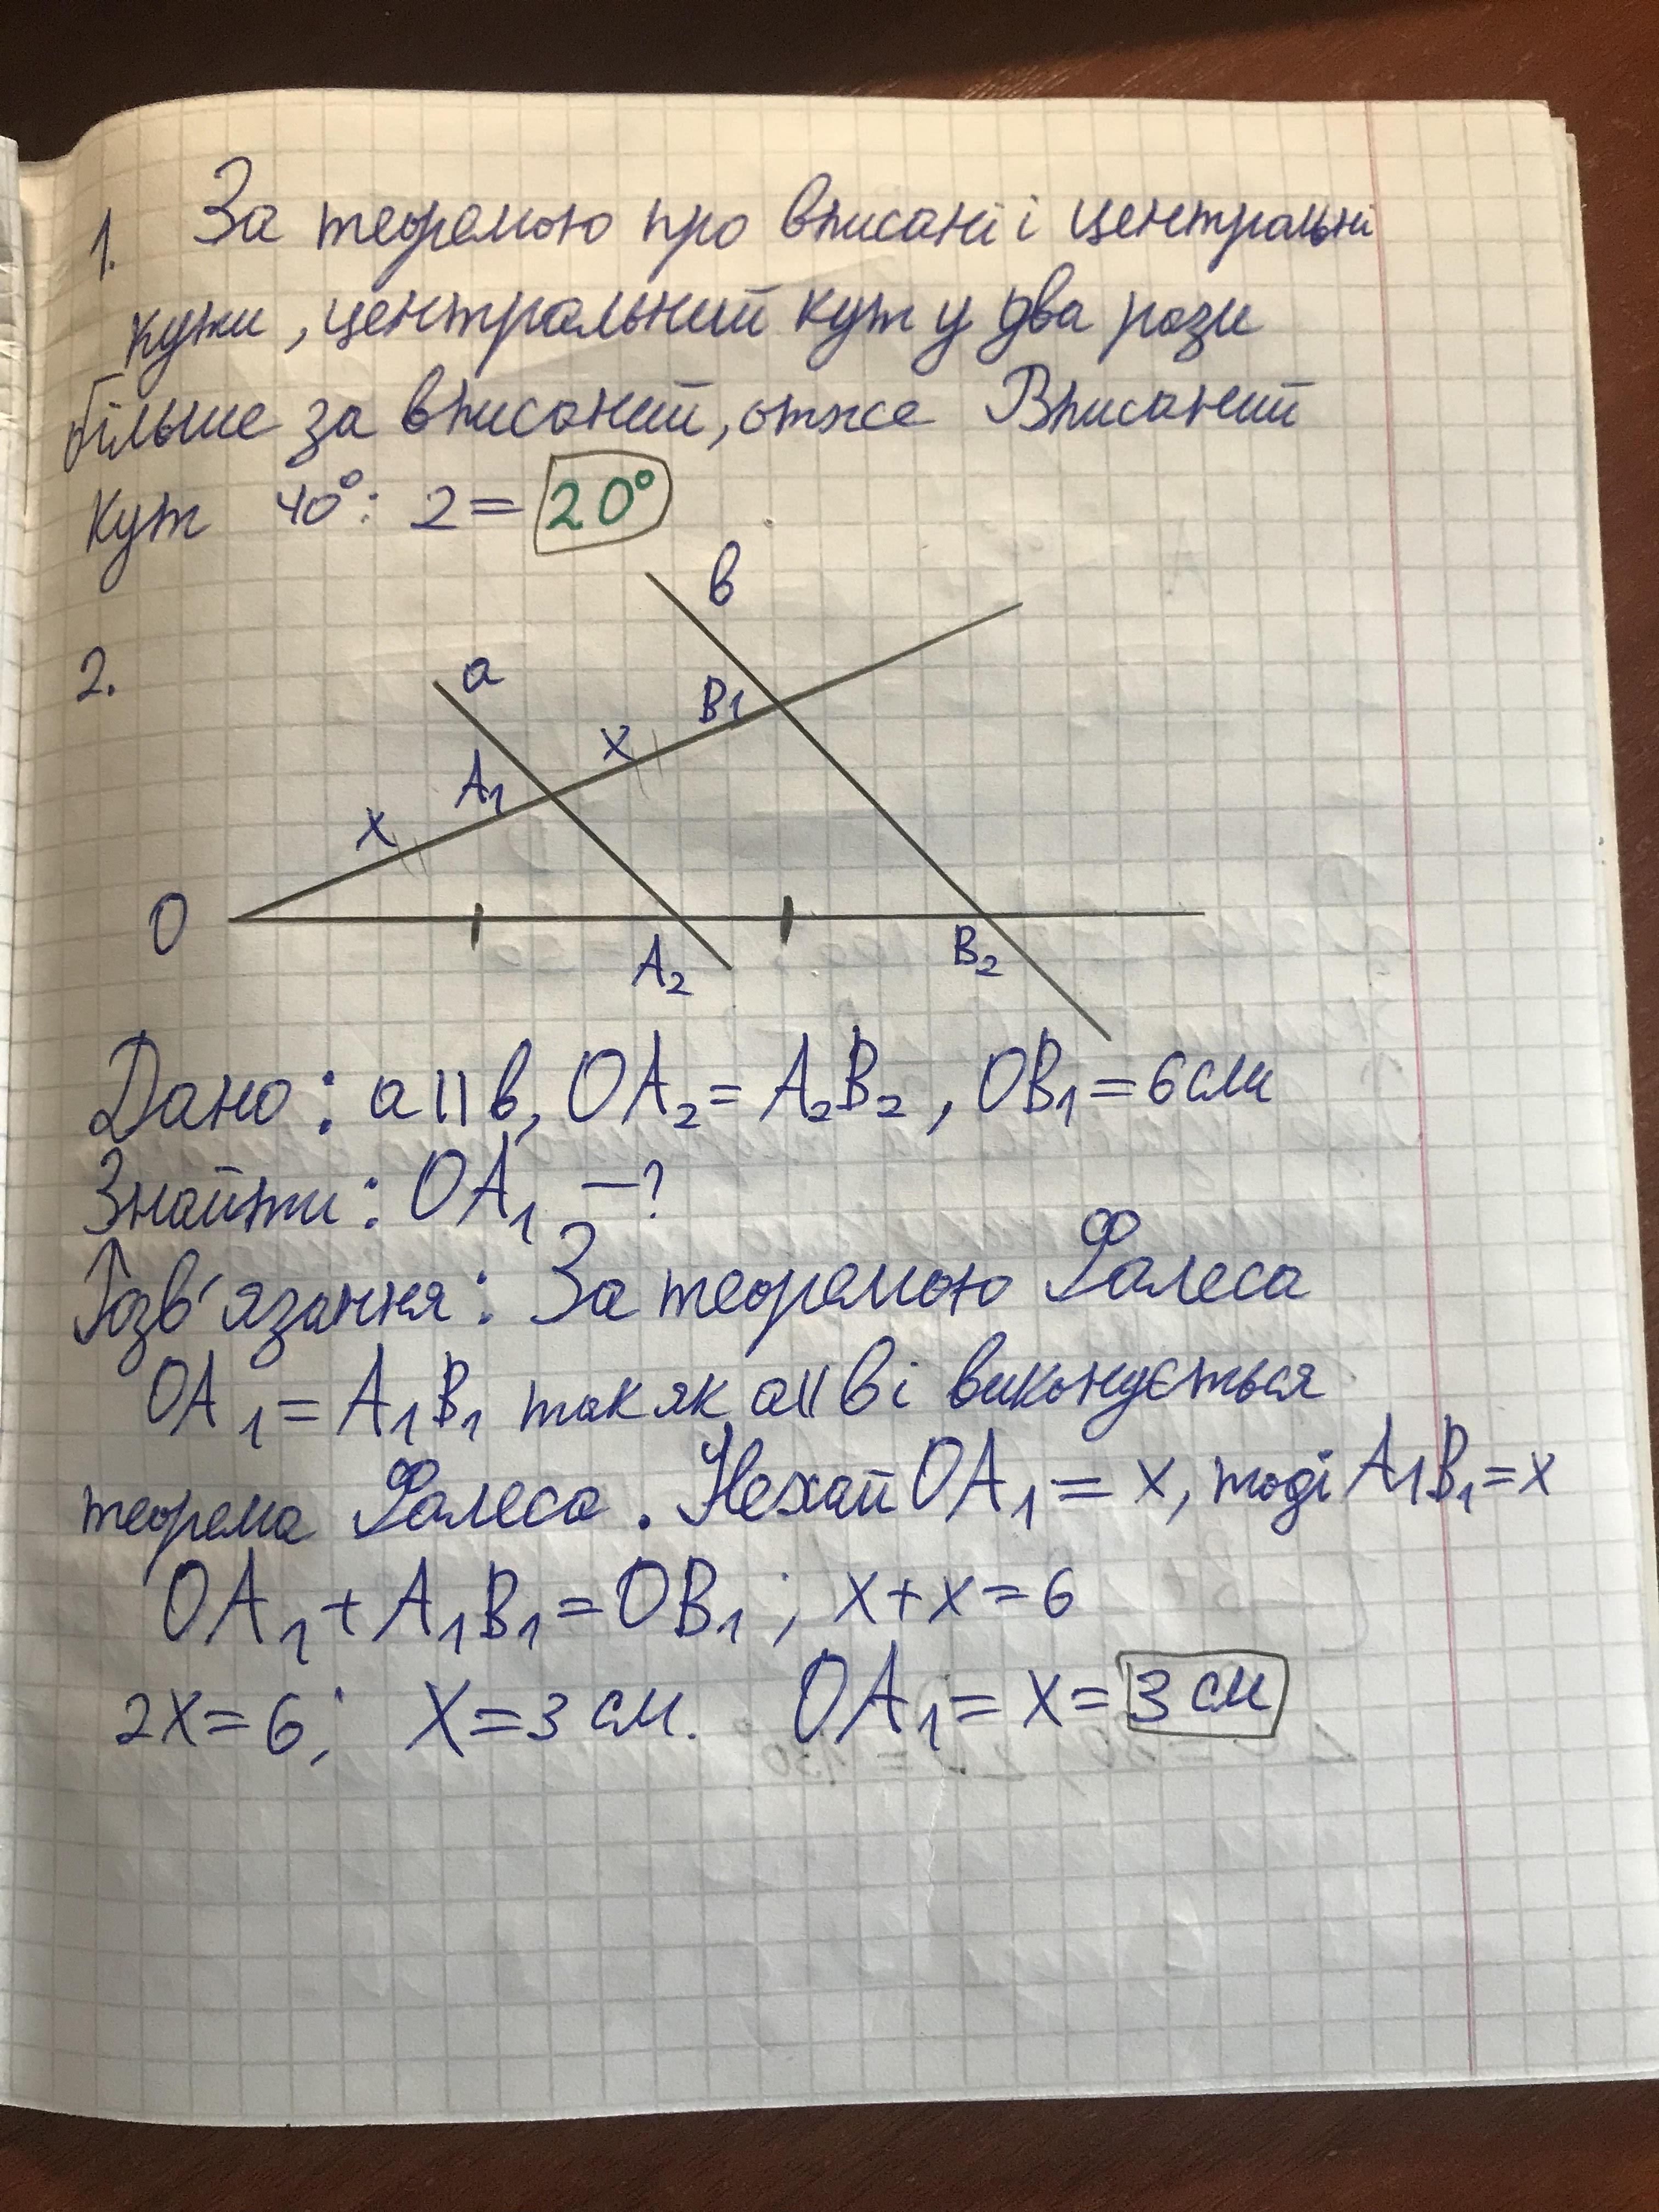 1. За теоремою про вписані і центральні
кути, центральний кут у два рази
більше за вписаний, отже Вписаний
кут 40°: 2= 20°
2.
в
а
B1
x
A1
x
O
A2
B2
Дано: a||в, OA2= A2B2, OB1=6см
Знайти: OA1 —?
Розв'язання: За теоремою Фалеса
OA1= A1B1 так як a||в і виконується
теорема Фалеса. Нехай OA1= x, тоді A1B1=x
OA1+A1B1=OB1; x+x=6
2x=6; x=3 см. OA1= x= 3 см